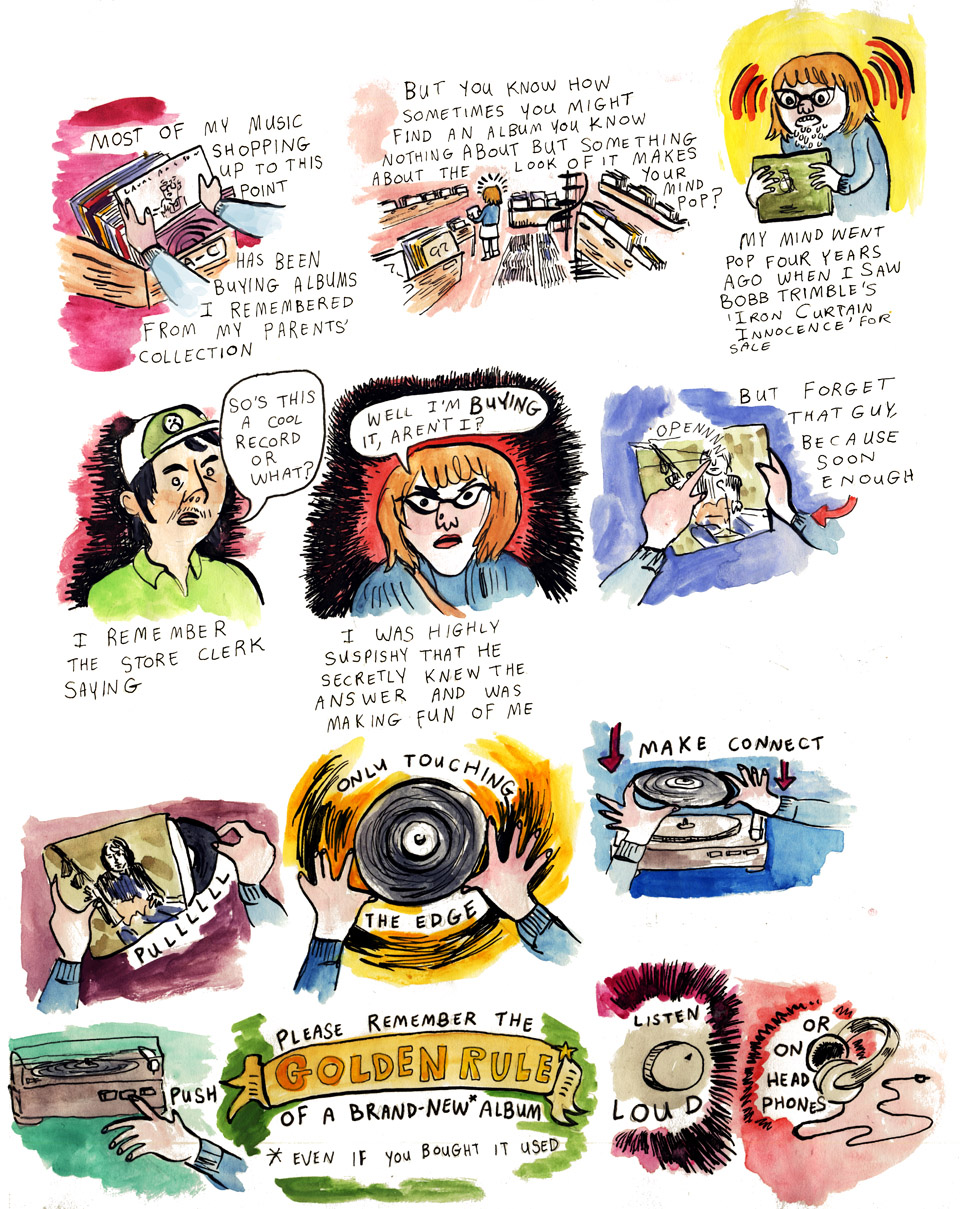 MOST OF MY MUSIC
SHOPPING
UP TO THIS
POINT
HAS BEEN
BUYING ALBUMS
I REMEMBERED
FROM MY PARENTS'
COLLECTION
BUT YOU KNOW HOW
SOMETIMES YOU MIGHT
FIND AN ALBUM YOU KNOW
NOTHING ABOUT BUT SOMETHING
ABOUT THE LOOK OF IT MAKES
YOUR
MIND
POP?
MY MIND WENT
POP FOUR YEARS
AGO WHEN I SAW
BOBB TRIMBLE'S
'IRON CURTAIN
INNOCENCE' FOR
SALE
SO'S THIS
A COOL
RECORD
OR
WHAT?
I REMEMBER
THE STORE CLERK
SAYING
WELL I'M BUYING
IT, AREN'T I?
I WAS HIGHLY
SUSPISHY THAT HE
SECRETLY KNEW THE
ANSWER AND WAS
MAKING FUN OF ME
BUT FORGET
THAT GUY,
BECAUSE
SOON
ENOUGH
OPENNNN
PULLLLLLL
ONLY TOUCHING
THE EDGE
MAKE CONNECT
PUSH
PLEASE REMEMBER THE
GOLDEN RULE
OF A BRAND-NEW* ALBUM
* EVEN IF YOU BOUGHT IT USED
LISTEN
LOUD
OR
ON
HEAD
PHONES